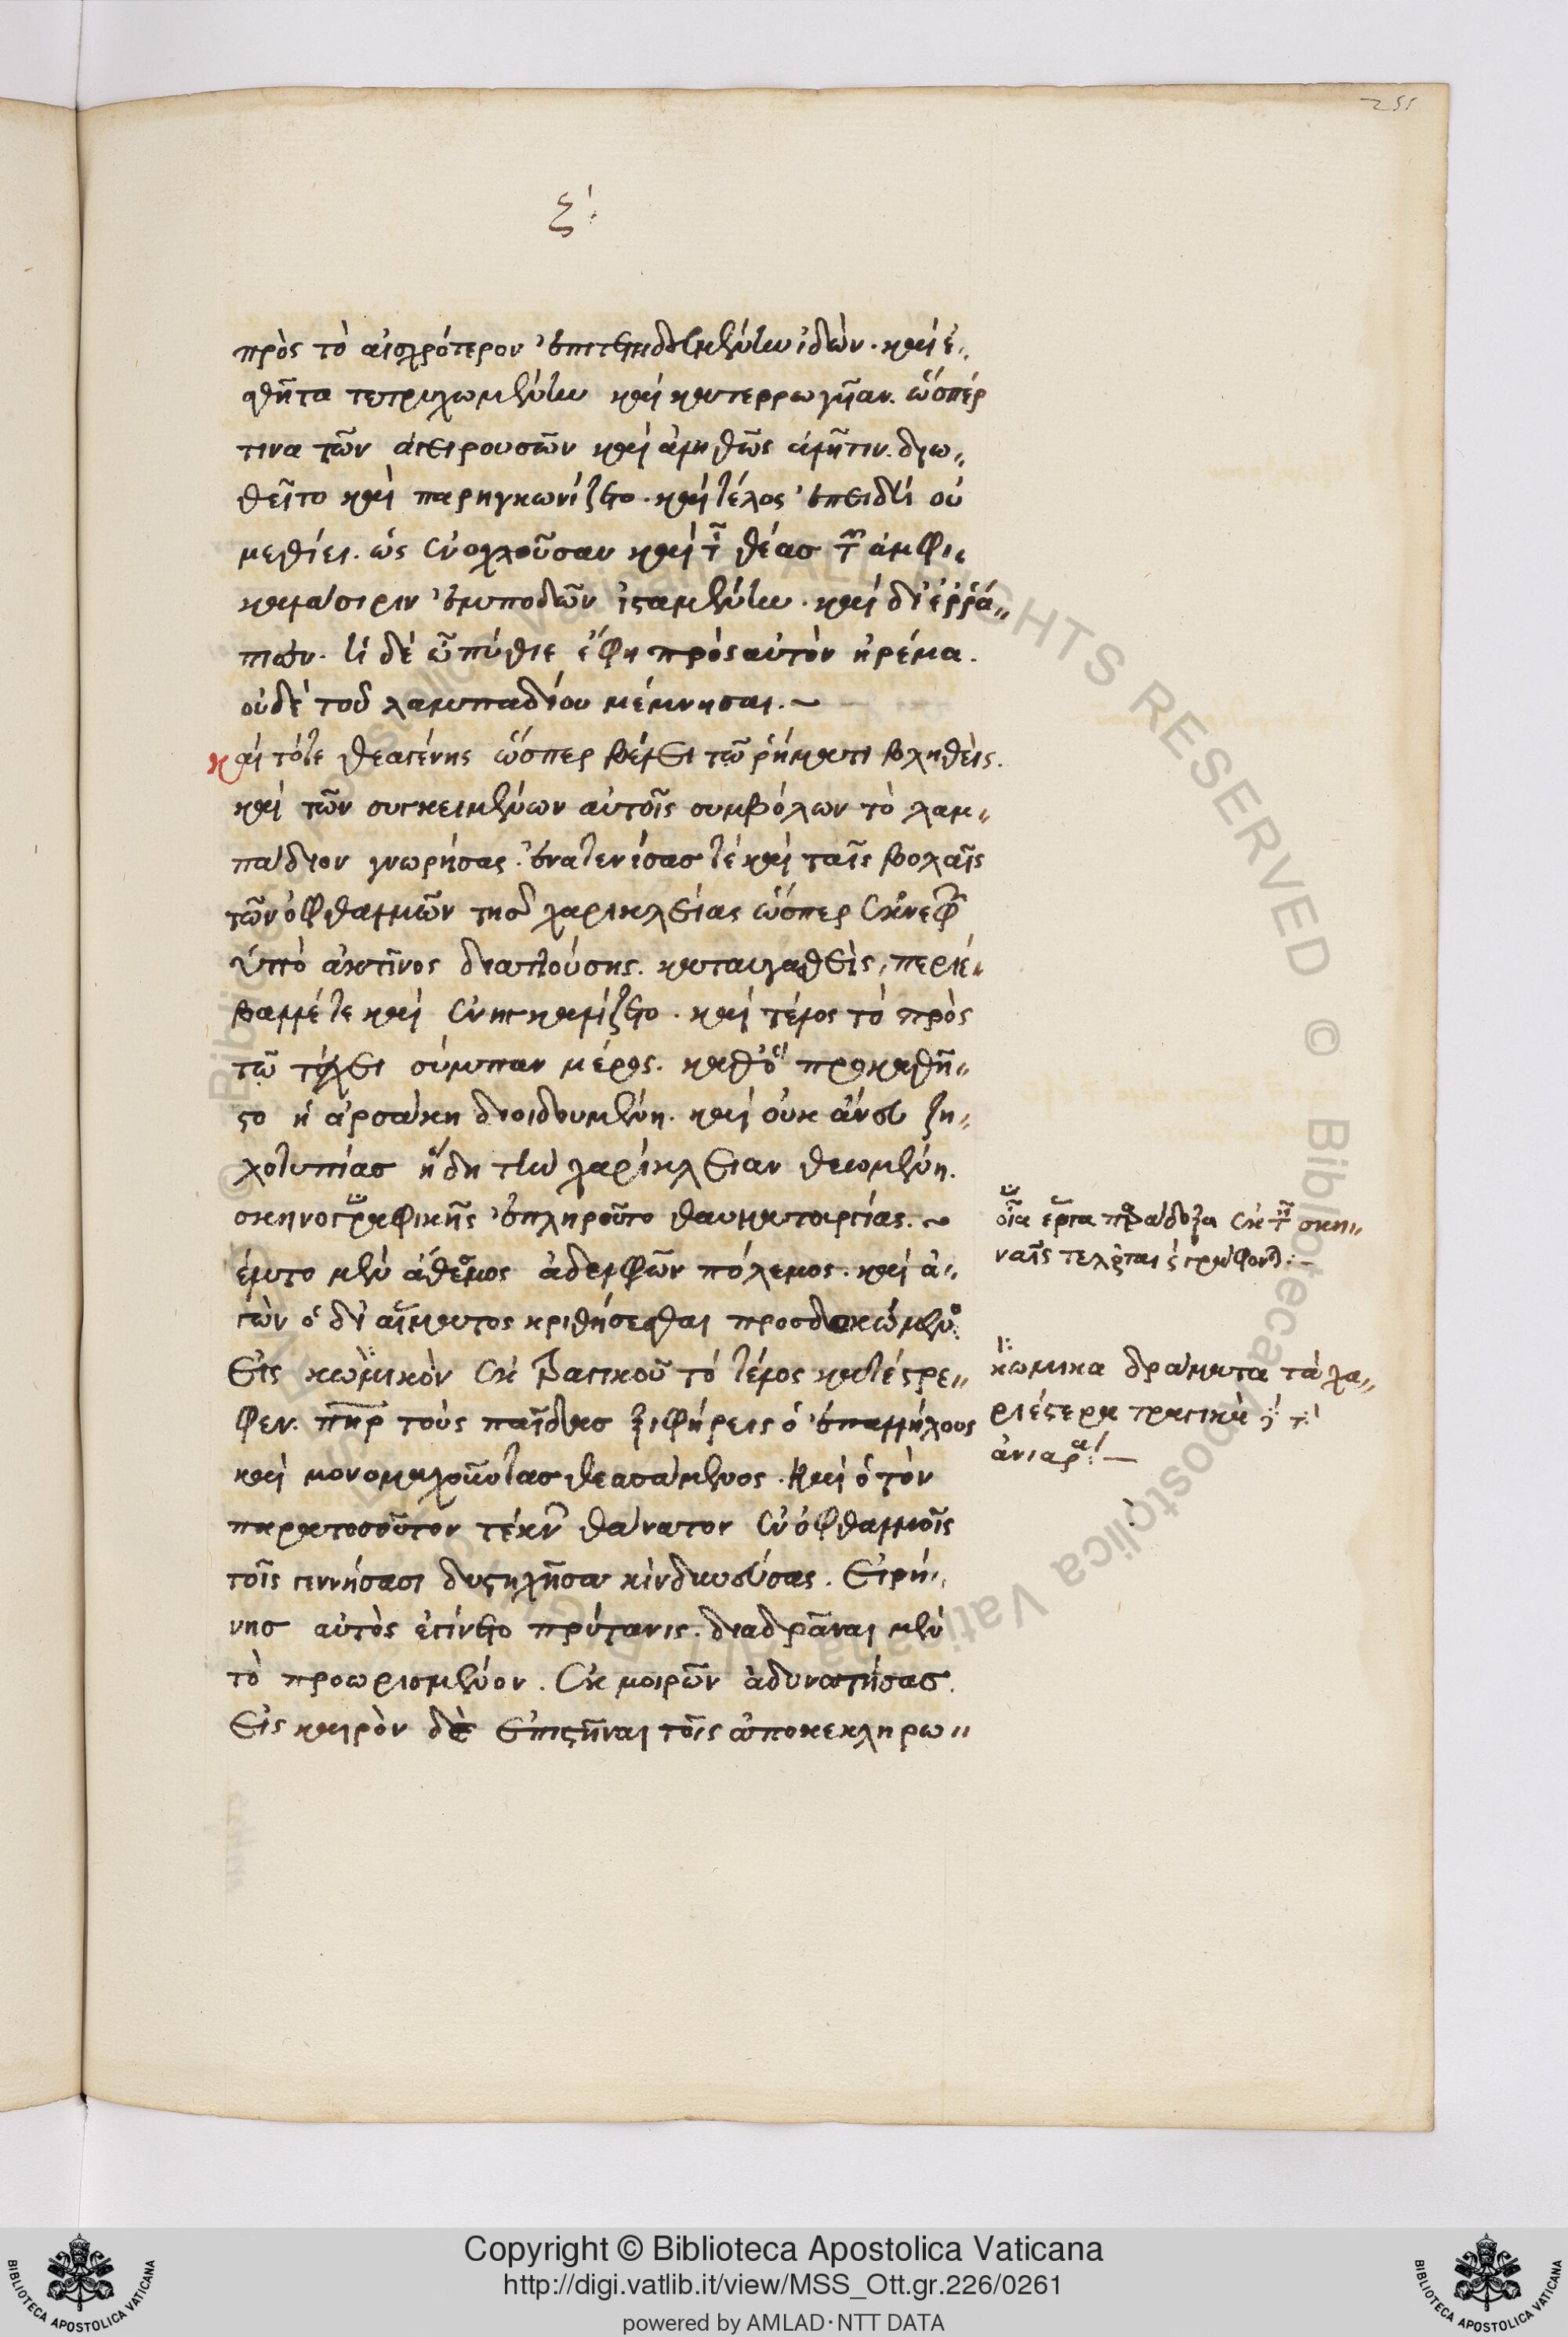 255
ζ΄:
πρὸς τὸ αἰσχρότερον ἐπιτετηδευμένην ἰδών. καὶ ἐ-
σθῆτα τετρυχωμένην καὶ κατερρωγυῖαν. ὥσπέρ
τινα τῶν ἀγειρουσῶν καὶ ἀληθῶς ἀλῆτιν. διω-
θεῖτο καὶ παρηγκωνίζετο. καὶ τέλος ἐπειδὴ οὐ
μεθίει. ὡς ἐνοχλοῦσαν καὶ τῆς θέας τῶν ἀμφὶ
καλάσιριν ἐμποδὼν ἱσταμένην. καὶ διερρά-
πισεν. τί δὲ ὦ πύθιε ἔφη πρὸς αὐτὸν ἠρέμα.
οὐδὲ τοῦ λαμπαδίου μέμνησαι. ~
καὶ τότε θεαγένης ὥσπερ βέλει τῷ ῥήματι βληθείς.
καὶ τῶν συγκειμένων αὐτοῖς συμβόλων τὸ λαμ-
πάδιον γνωρήσας. ἐνατενίσας τὲ καὶ ταῖς βολαῖς
τῶν ὀφθαλμῶν τῆς χαρικλείας ὥσπερ ἐκ νεφῶν
ὑπὸ ἀκτῖνος διαττούσης. καταυγασθεὶς, περιέ-
βαλλέ τε καὶ ἐνηγκαλίζετο. καὶ τέλος τὸ πρὸς
τῷ τείχει σύμπαν μέρος. καθ' ὃ προκαθῆ-
στο ἡ ἀρσάκη διοιδουμένη. καὶ οὐκ ἄνευ ζη-
λοτυπίας ἤδη τὴν χαρίκλειαν θεωμένη.
σκηνογραφικῆς ἐπληροῦτο θαυματουργίας. ~
ἔλυτο μὲν ἄθεσμος ἀδελφῶν πόλεμος. καὶ ἀ-
γὼν ὁ δι' αἵματος κριθήσεσθαι προσδοκώμενος
εἰς κωμικὸν ἐκ τραγικοῦ τὸ τέλος κατέστρε-
φεν. πατὴρ τοὺς παῖδας ξιφήρεις ὁ ἐπ' ἀλλήλους
καὶ μονομαχοῦντας θεασάμενος. καὶ ὁ τὸν
παρὰ τοσοῦτον τέκνων θάνατον ἐν ὀφθαλμοῖς
τοῖς γεννήσασι δυστυχῆσαι κινδυνεύσας. εἰρή-
νης αὐτὸς ἐγίνετο πρύτανις. διαδρᾶναι μὲν
τὸ προωρισμένον. ἐκ μοιρῶν ἀδυνατήσας.
εἰς καιρὸν δὲ ἐπιστῆναι τοῖς ἀποκεκληρω-
οἷα ἔργα παράδοξα ἐν ταῖς σκη-
ναῖς τελοῦνται
κωμικὰ δράματα τὰ χα-
ριέστερα τραγικὰ δὲ τὰ
ἀνιαρά: —
© Biblioteca Apostolica Vaticana ALL RIGHTS RESERVED © Biblioteca Apostolica Vaticana
Copyright © Biblioteca Apostolica Vaticana
http://digi.vatlib.it/view/MSS_Ott.gr.226/0261
powered by AMLAD·NTT DATA
BIBLIOTECA APOSTOLICA VATICANA
BIBLIOTECA APOSTOLICA VATICANA